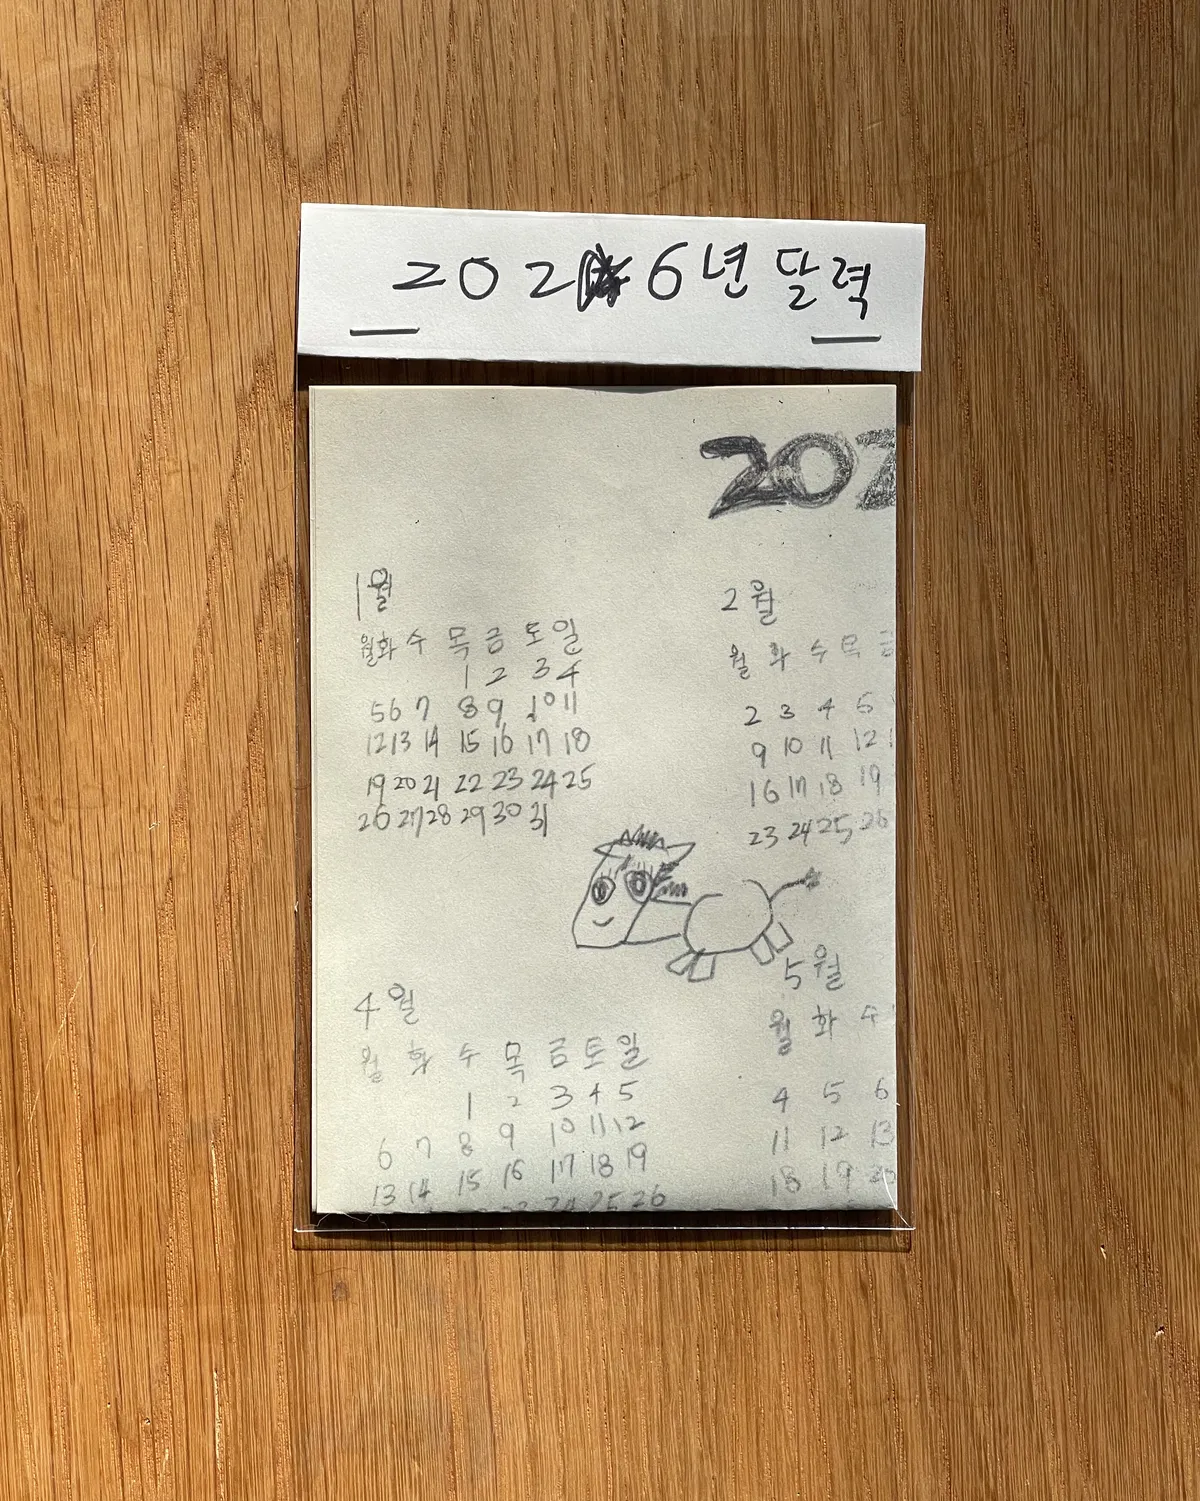 2026년 달력
202
1월
월 화 수 목 금 토 일
1 2 3 4
5 6 7 8 9 10 11
12 13 14 15 16 17 18
19 20 21 22 23 24 25
26 27 28 29 30 31
2월
월 화 수 목 금
2 3 4 5
9 10 11 12
16 17 18 19
23 24 25 26
4월
월 화 수 목 금 토 일
1 2 3 4 5
6 7 8 9 10 11 12
13 14 15 16 17 18 19
24 25 26
5월
월 화 수
4 5 6
11 12 13
18 19 20